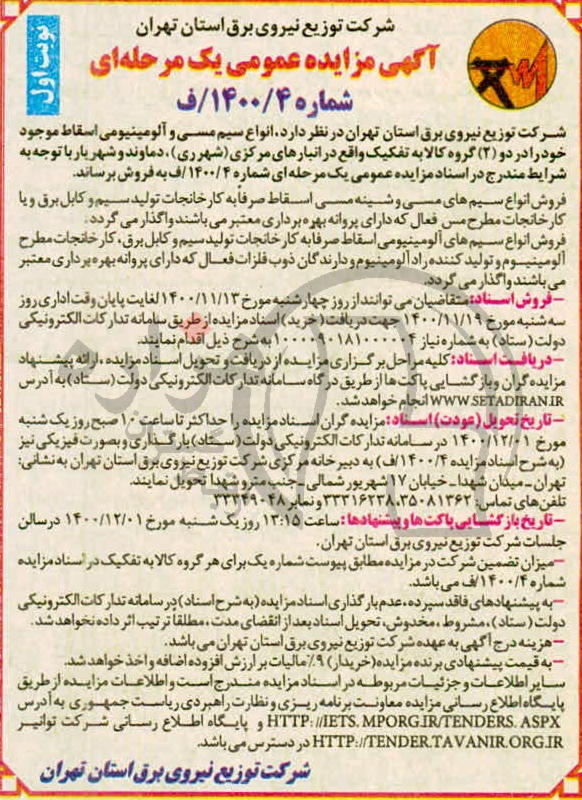 شرکت توزیع نیروی برق استان تهران
آگهی مزایده عمومی یک مرحله‌ای
شماره ۱۴۰۰/۴/ف
نوبت اول
شرکت توزیع نیروی برق استان تهران در نظر دارد، انواع سیم مسی و آلومینیومی اسقاط موجود
خود را در دو (۲) گروه کالا به تفکیک واقع در انبارهای مرکزی (شهر ری)، دماوند و شهریار با توجه به
شرایط مندرج در اسناد مزایده عمومی یک مرحله‌ای شماره ۱۴۰۰/۴/ف به فروش برساند.
فروش انواع سیم های مسی و شینه مسی اسقاط صرفاً به کارخانجات تولید سیم و کابل برق و یا
کارخانجات مطرح مس فعال که دارای پروانه بهره برداری معتبر می باشند واگذار می گردد.
فروش انواع سیم های آلومینیومی اسقاط صرفا به کارخانجات تولید سیم و کابل برق، کارخانجات مطرح
آلومینیوم و تولید کننده راد آلومینیوم و دارندگان ذوب فلزات فعال که دارای پروانه بهره برداری معتبر
می باشند واگذار می گردد.
–فروش اسناد: متقاضیان می توانند از روز چهارشنبه مورخ ۱۴۰۰/۱۱/۱۳ لغایت پایان وقت اداری روز
سه شنبه مورخ ۱۴۰۰/۱۱/۱۹ جهت دریافت (خرید) اسناد مزایده از طریق سامانه تدارکات الکترونیکی
دولت (ستاد) به شماره نیاز ۱۰۰۰۰۹۰۱۸۱۰۰۰۰۰۴ به شرح ذیل اقدام نمایند.
–دریافت اسناد: کلیه مراحل برگزاری مزایده از دریافت و تحویل اسناد مزایده، ارائه پیشنهاد
مزایده گران و بازگشایی پاکت ها از طریق درگاه سامانه تدارکات الکترونیکی دولت (ستاد) به آدرس
WWW.SETADIRAN.IR انجام خواهد شد.
–تاریخ تحویل (عودت) اسناد: مزایده گران اسناد مزایده را حداکثر تا ساعت ۱۰ صبح روز یک شنبه
مورخ ۱۴۰۰/۱۲/۰۱ در سامانه تدارکات الکترونیکی دولت (ستاد) بارگذاری و بصورت فیزیکی نیز
(به شرح اسناد مزایده ۱۴۰۰/۴/ف) به دبیرخانه مرکزی شرکت توزیع نیروی برق استان تهران به نشانی:
تهران - میدان شهدا - خیابان ۱۷ شهریور شمالی - جنب مترو شهدا تحویل نمایند.
تلفن های تماس: ۳۵۰۸۱۳۶۲، ۳۳۳۱۶۲۳۸ و نمابر ۳۳۳۴۹۰۴۸
–تاریخ بازگشایی پاکت ها و پیشنهادها: ساعت ۱۳:۱۵ روز یک شنبه مورخ ۱۴۰۰/۱۲/۰۱ در سالن
جلسات شرکت توزیع نیروی برق استان تهران.
–میزان تضمین شرکت در مزایده مطابق پیوست شماره یک برای هر گروه کالا به تفکیک در اسناد مزایده
شماره ۱۴۰۰/۴/ف می باشد.
–به پیشنهادهای فاقد سپرده، عدم بارگذاری اسناد مزایده (به شرح اسناد) در سامانه تدارکات الکترونیکی
دولت (ستاد)، مشروط، مخدوش، تحویل اسناد بعد از انقضای مدت، مطلقا ترتیب اثر داده نخواهد شد.
–هزینه درج آگهی به عهده شرکت توزیع نیروی برق استان تهران می باشد.
–به قیمت پیشنهادی برنده مزایده (خریدار) ۹٪ مالیات بر ارزش افزوده اضافه و اخذ خواهد شد.
سایر اطلاعات و جزئیات مربوطه در اسناد مزایده مندرج است و اطلاعات مزایده از طریق
پایگاه اطلاع رسانی مزایده معاونت برنامه ریزی و نظارت راهبردی ریاست جمهوری به آدرس
HTTP://IETS.MPORG.IR/TENDERS.ASPX و پایگاه اطلاع رسانی شرکت توانیر
HTTP://TENDER.TAVANIR.ORG.IR در دسترس می باشد.
شرکت توزیع نیروی برق استان تهران